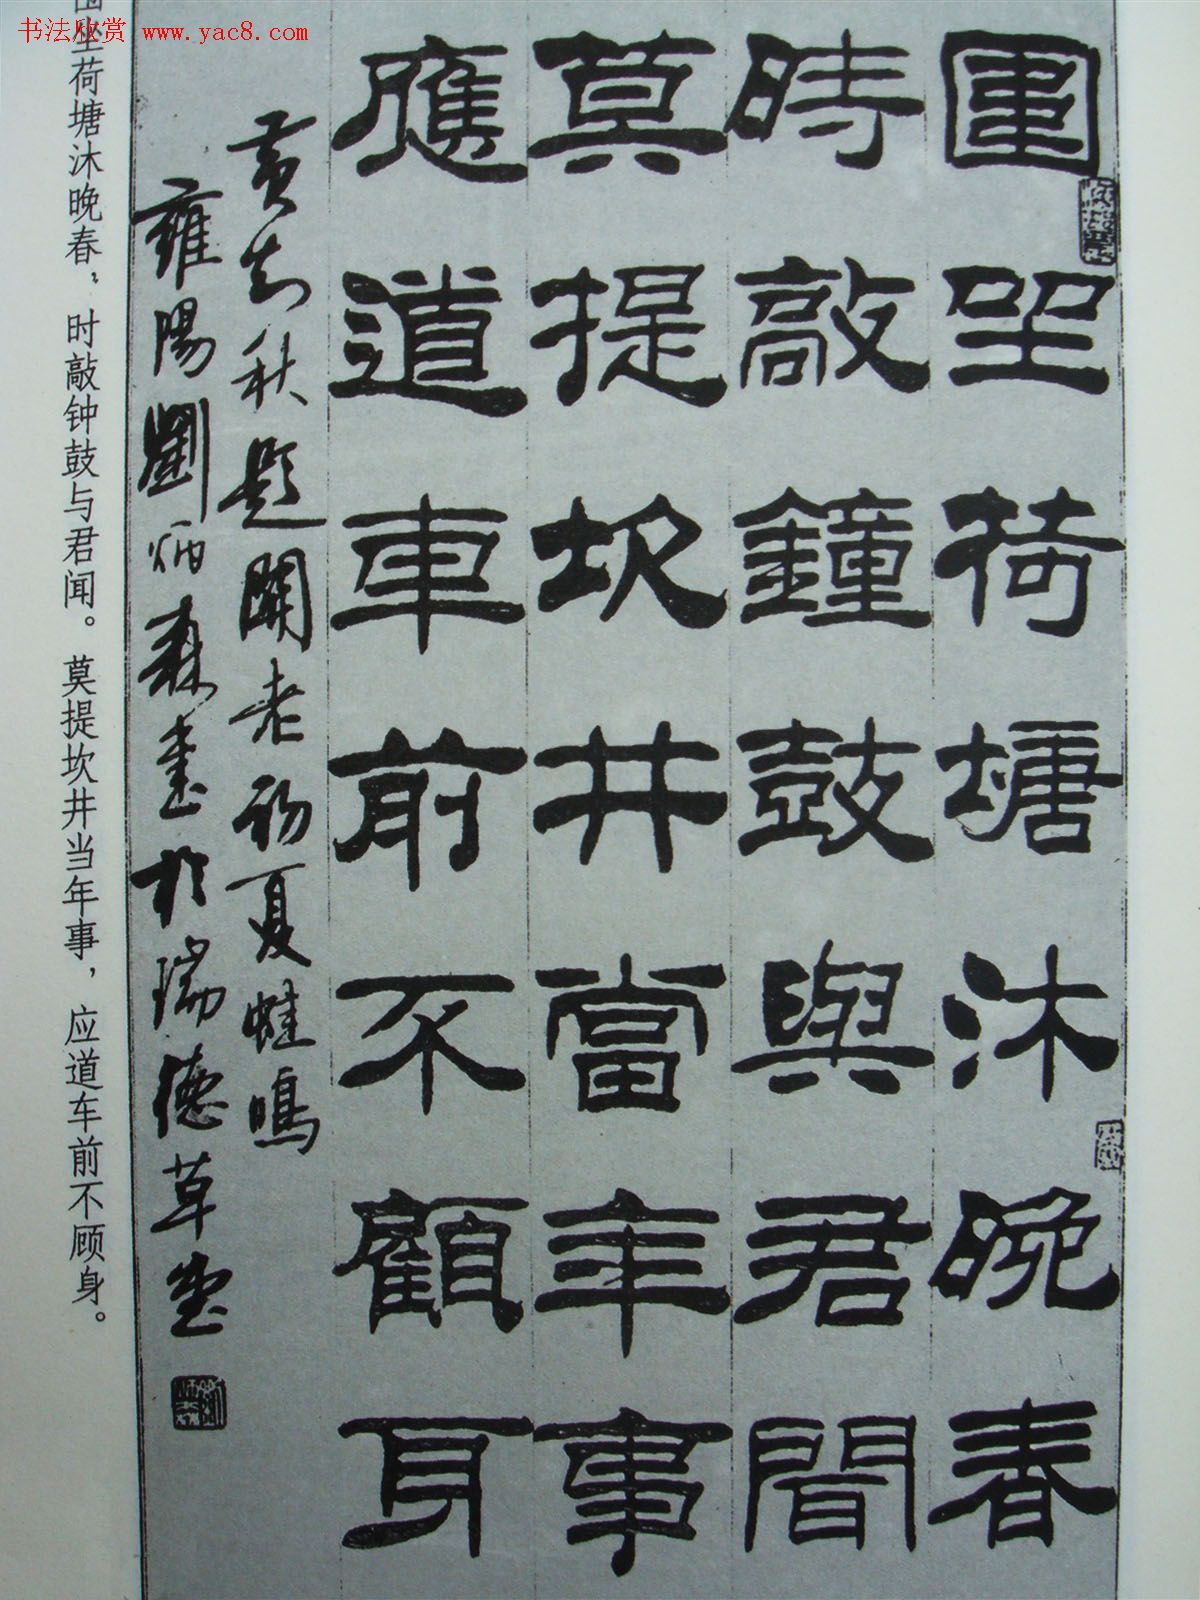 书法欣赏 www.yac8.com
圍坐荷塘沐晚春
時敲鐘鼓與君聞
莫提坎井當年事
應道車前不顧身
黃知秋題關老初夏蛙鳴
雍陽劉炳森書於瑞德草堂
围坐荷塘沐晚春，时敲钟鼓与君闻。莫提坎井当年事，应道车前不顾身。